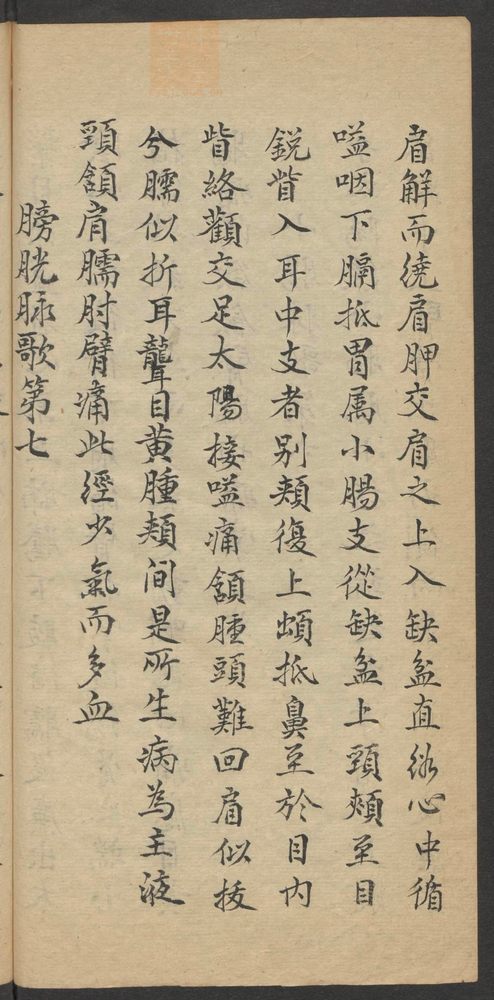 肩解而繞肩胛交肩之上入缺盆直絡心中循
嗌咽下膈抵胃属小腸支從缺盆上頸頰至目
鋭眥入耳中支者别頰復上䪼抵鼻至於目内
眥絡顴交足太陽接嗌痛頷腫頭難回肩似拔
兮臑似折耳聾目黄腫頰间是所生病為主液
頸頷肩臑肘臂痛此經少氣而多血
膀胱脉歌第七